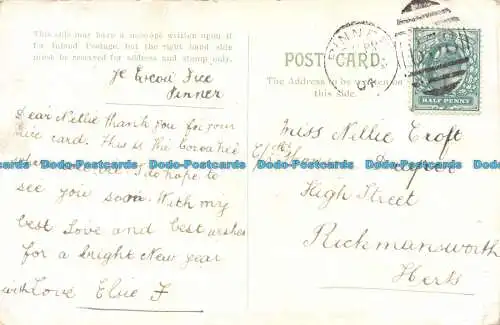 This side may have a message written upon it
for Inland Postage, but the right hand side
must be reserved for address and stamp only.
Ye Cocoa Tree
Pinner
Dear Nellie thank you for your
nice card. This is the Cocoa Tree
I do hope to
see you soon. With my
best Love and best wishes
for a bright New year
with Love Elsie F
POST CARD.
The Address to be written on
this Side.
PINNER
04
HALF PENNY
Miss Nellie Croft
High Street
Rickmansworth
Herts
Dodo-Postcards Dodo-Postcards Dodo-Postcards Dodo-Postcards Dodo-Postcards